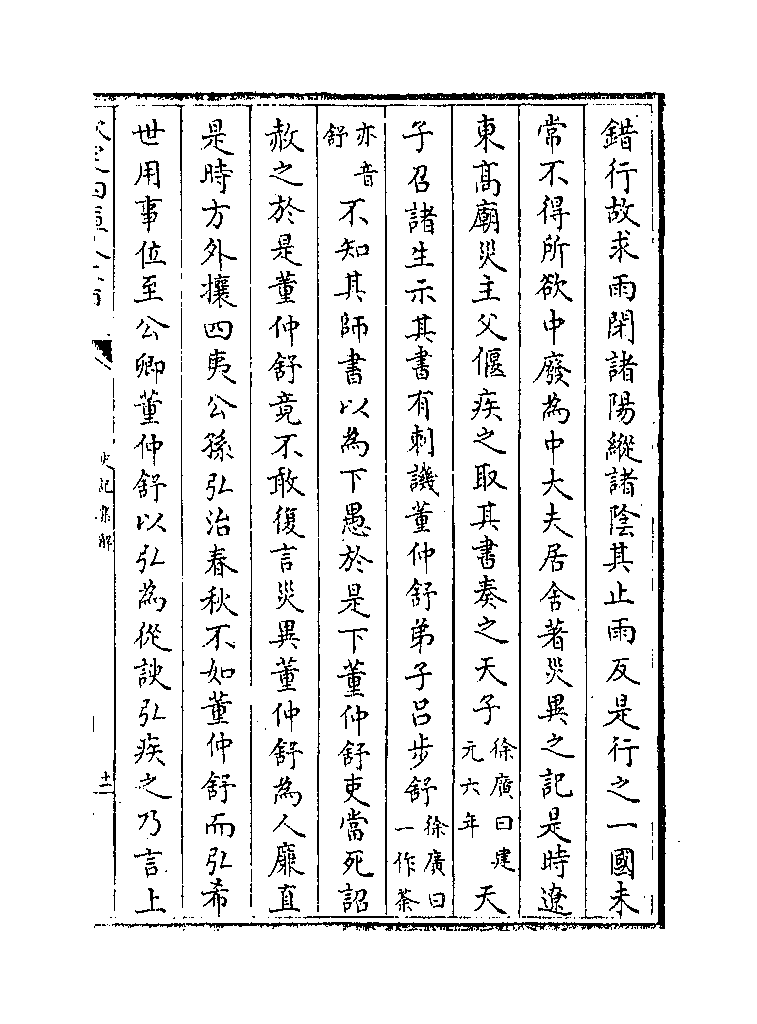 錯行故求雨閉諸陽縱諸陰其止雨反是行之一國未
常不得所欲中廢為中大夫居舍著災異之記是時遼
東髙廟災主父偃疾之取其書奏之天子徐廣曰建元六年天
子召諸生示其書有刺譏董仲舒弟子吕步舒徐廣曰一作荼
亦音舒不知其師書以為下愚於是下董仲舒吏當死詔
赦之於是董仲舒竟不敢復言災異董仲舒為人廉直
是時方外攘四夷公孫弘治春秋不如董仲舒而弘希
世用事位至公卿董仲舒以弘為從諛弘疾之乃言上
史記集解
十二